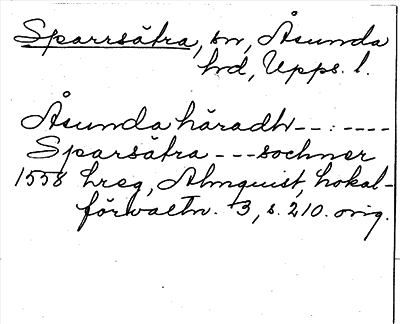 Sparrsätra, sn, Åsunda
hd, Upps. l.
Åsunda häradh --:----
Sparsätra --- sochner
1558 hreg, Almquist, Lokal-
förvaltn. 3, s. 210. orig.